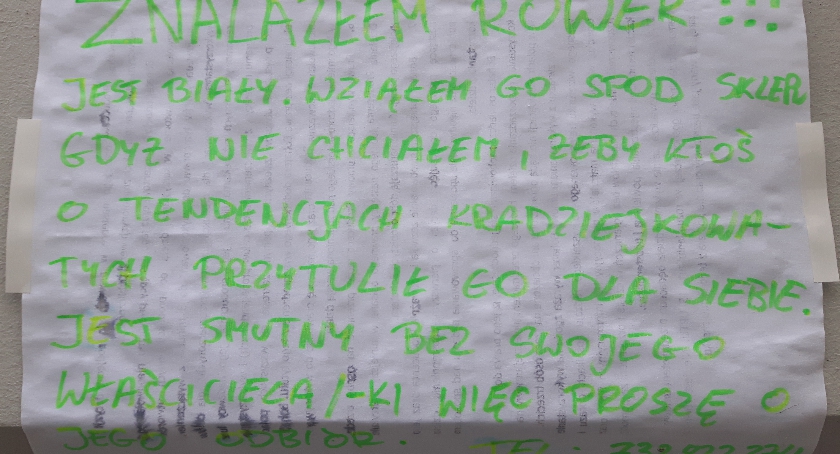 ZNALAZŁEM ROWER !!!
JEST BIAŁY. WZIĄŁEM GO SPOD SKLEPU
GDYŻ NIE CHCIAŁEM, ŻEBY KTOŚ
O TENDENCJACH KRADZIEJKOWA-
TYCH PRZYTULIŁ GO DLA SIEBIE.
JEST SMUTNY BEZ SWOJEGO
WŁAŚCICIELA/-KI WIĘC PROSZĘ O
JEGO ODBIÓR. TEL: